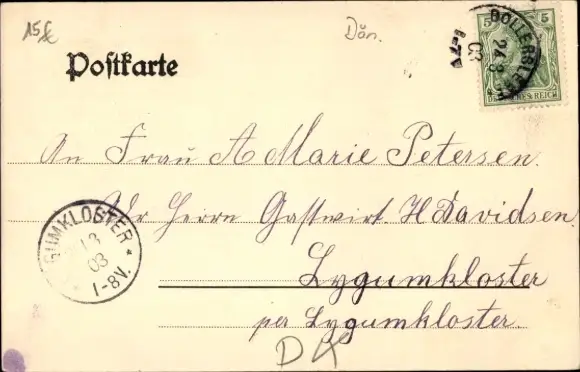 15 Dän.
Postkarte
5 5
DEUTSCHES REICH
BOLLERSLEBEN
24 8
03
1-7V
An Frau A Marie Petersen.
Adr Herrn Gastwirt H Davidsen
Lygumkloster
per Lygumkloster.
GUMKLOSTER
03
1-8V.
DK